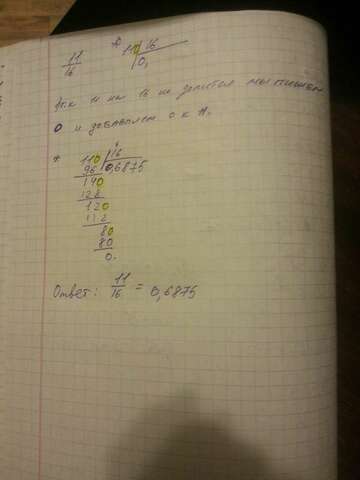 11/16 110 | 16
0,
так 11 на 16 не делится мы пишем
0 и добавляем 0 к 11.
110 | 16
96 0,6875
140
128
120
112
80
80
0.
Ответ: 11/16 = 0,6875